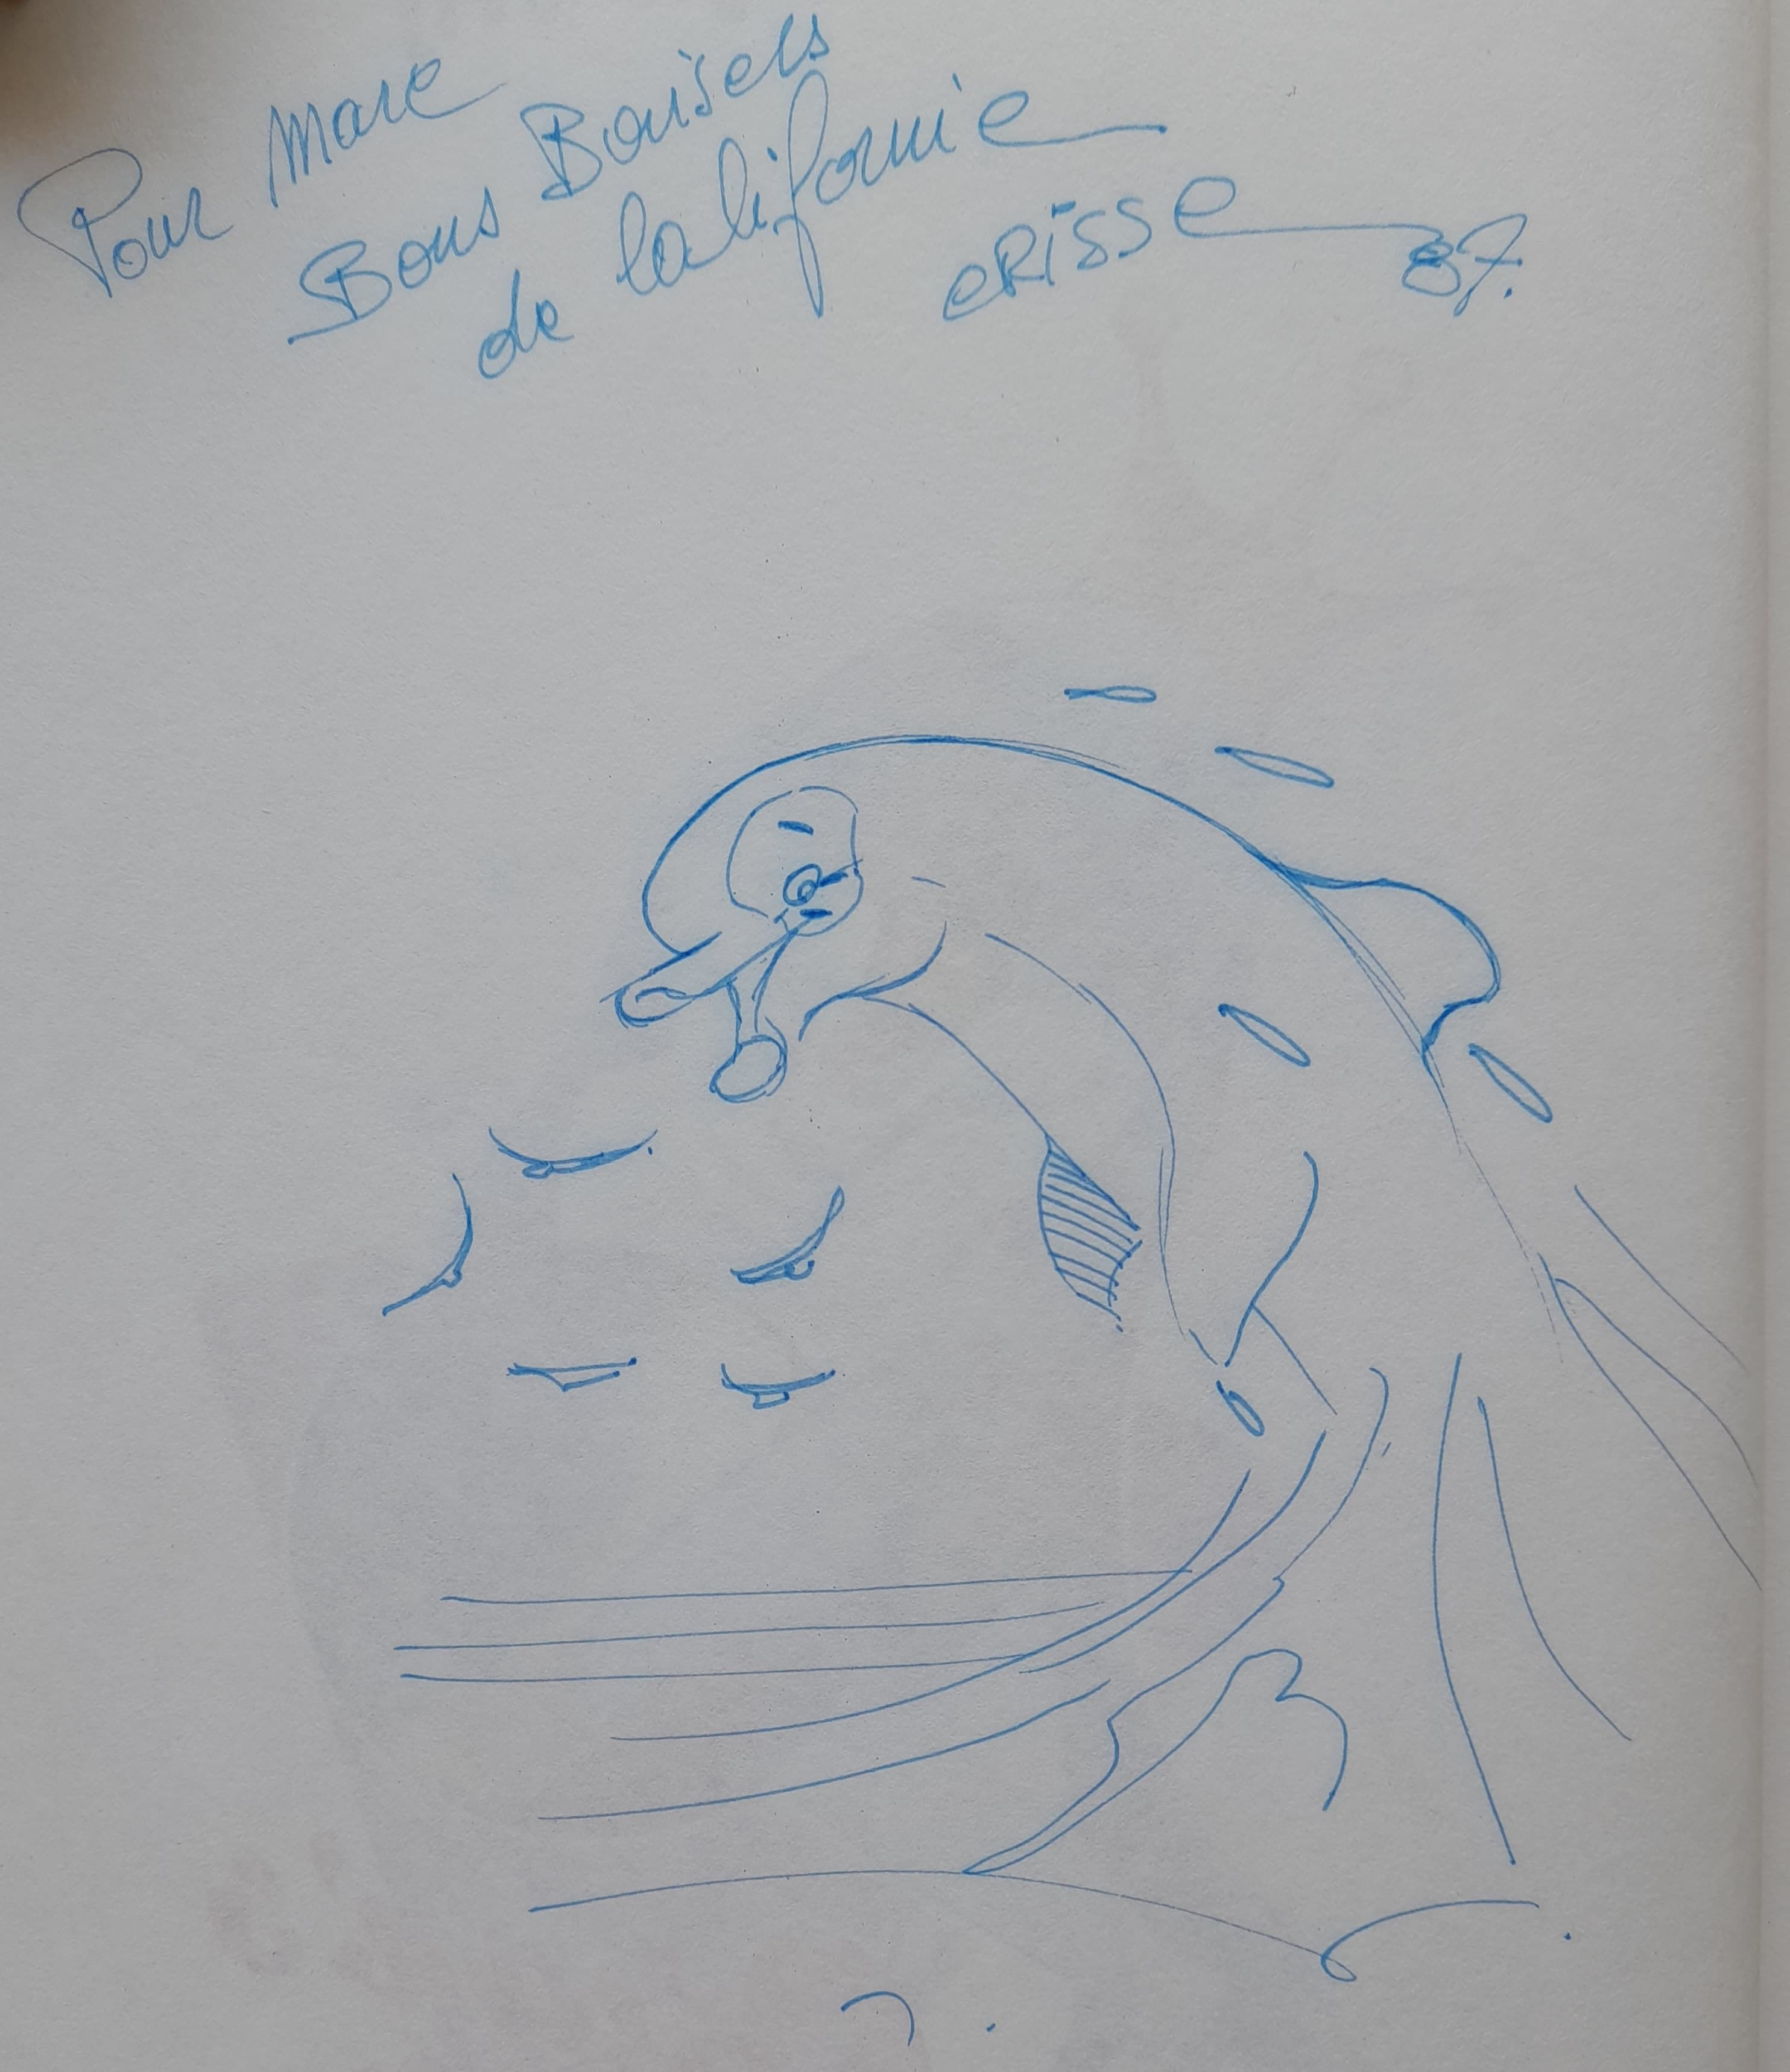 Pour Marc
Bons Baisers
de Californie
eRisse 87.